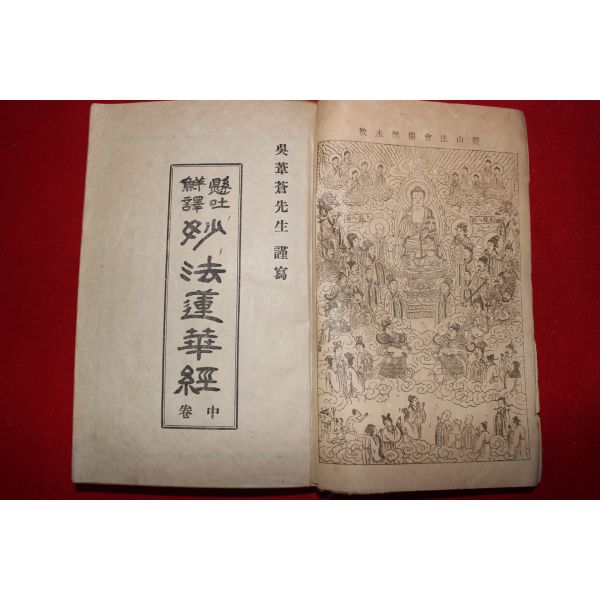 靈山法會儼然未散
吳葦蒼先生 謹寫
懸吐
鮮譯
妙法蓮華經
中卷